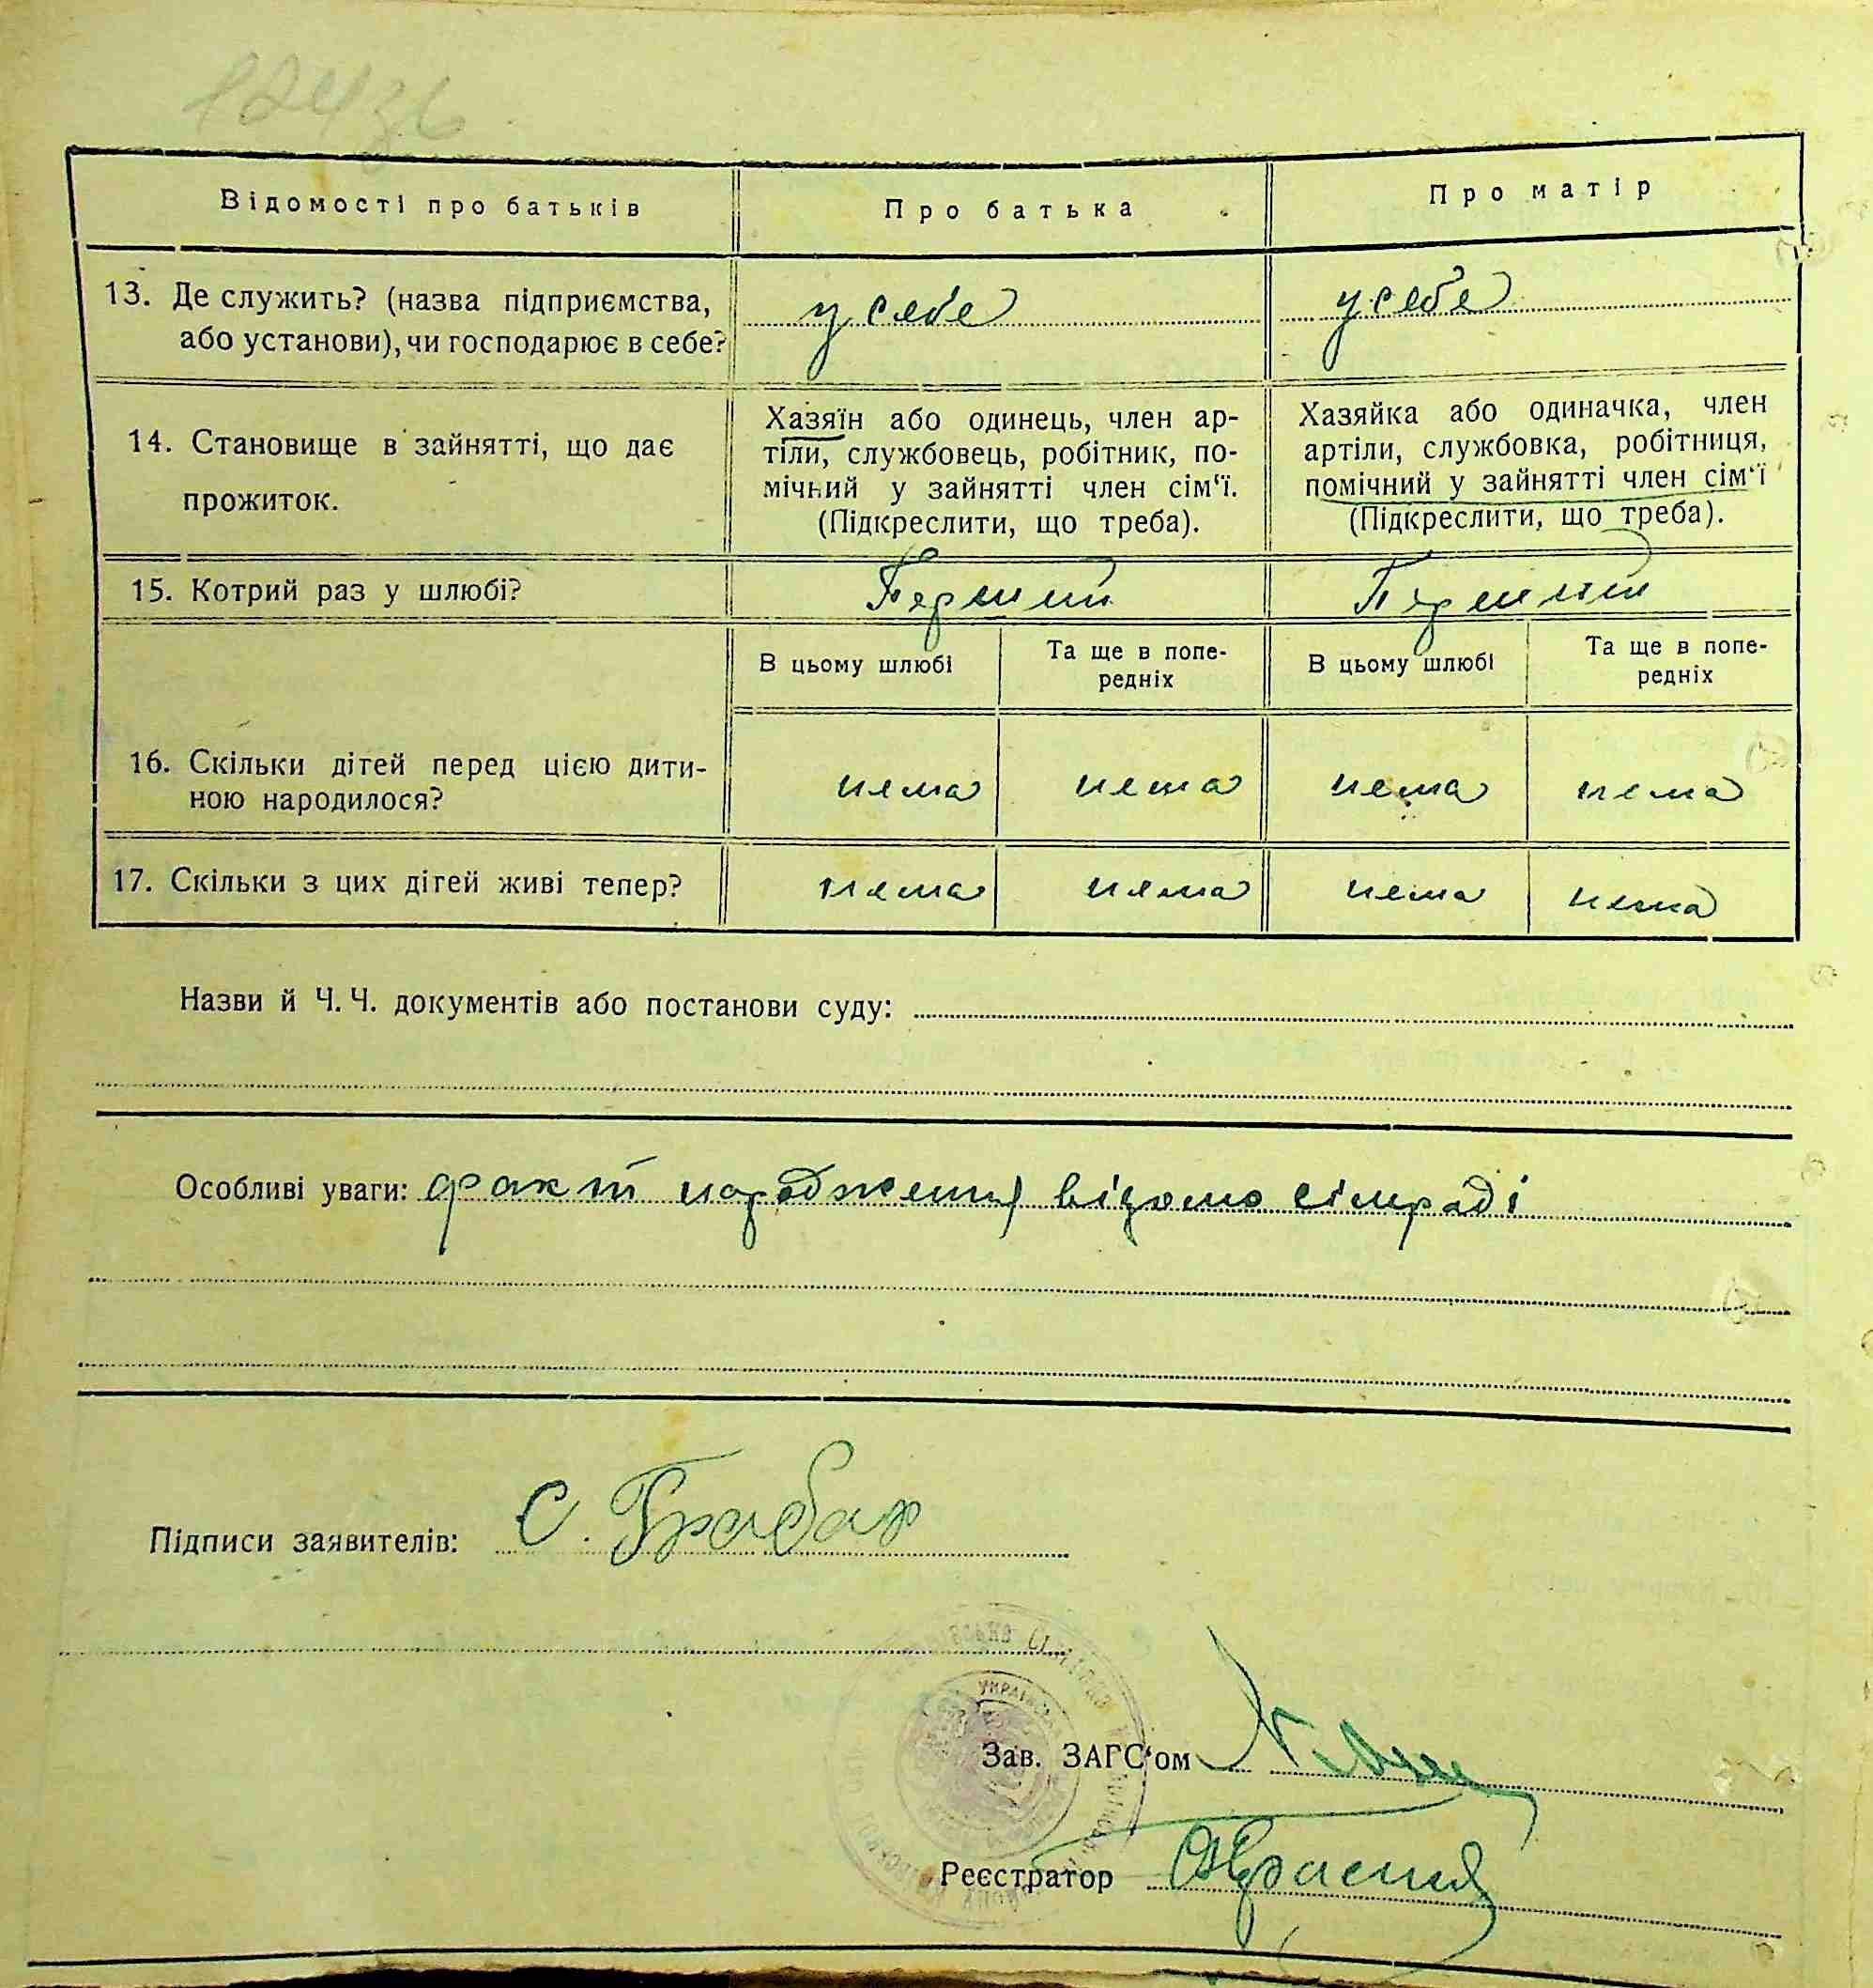 12436
Відомості про батьків
Про батька
Про матір
13. Де служить? (назва підприємства,
або установи), чи господарює в себе?
у себе
у себе
14. Становище в зайнятті, що дає
прожиток.
Хазяїн або одинець, член ар-
тіли, службовець, робітник, по-
мічний у зайнятті член сім‘ї.
(Підкреслити, що треба).
Хазяйка або одиначка, член
артіли, службовка, робітниця,
помічний у зайнятті член сім‘ї
(Підкреслити, що треба).
15. Котрий раз у шлюбі?
Перший
Перший
В цьому шлюбі
Та ще в попе-
редніх
В цьому шлюбі
Та ще в попе-
редніх
16. Скільки дітей перед цією дити-
ною народилося?
нема
нема
нема
нема
17. Скільки з цих дітей живі тепер?
нема
нема
нема
нема
Назви й Ч. Ч. документів або постанови суду:
Особливі уваги: факт народження відомо сілмраді
Підписи заявителів: С. Грабар
Зав. ЗАГС‘ом
Реєстратор